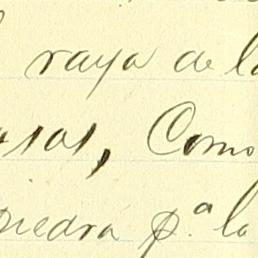 raya de la
asas, Como
piedra p.ª la